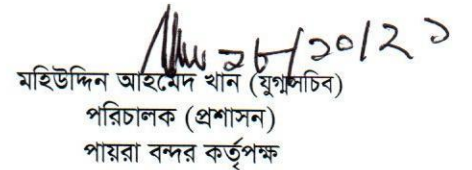 ২৮/১০/২১
মহিউদ্দিন আহমেদ খান (যুগ্মসচিব)
পরিচালক (প্রশাসন)
পায়রা বন্দর কর্তৃপক্ষ